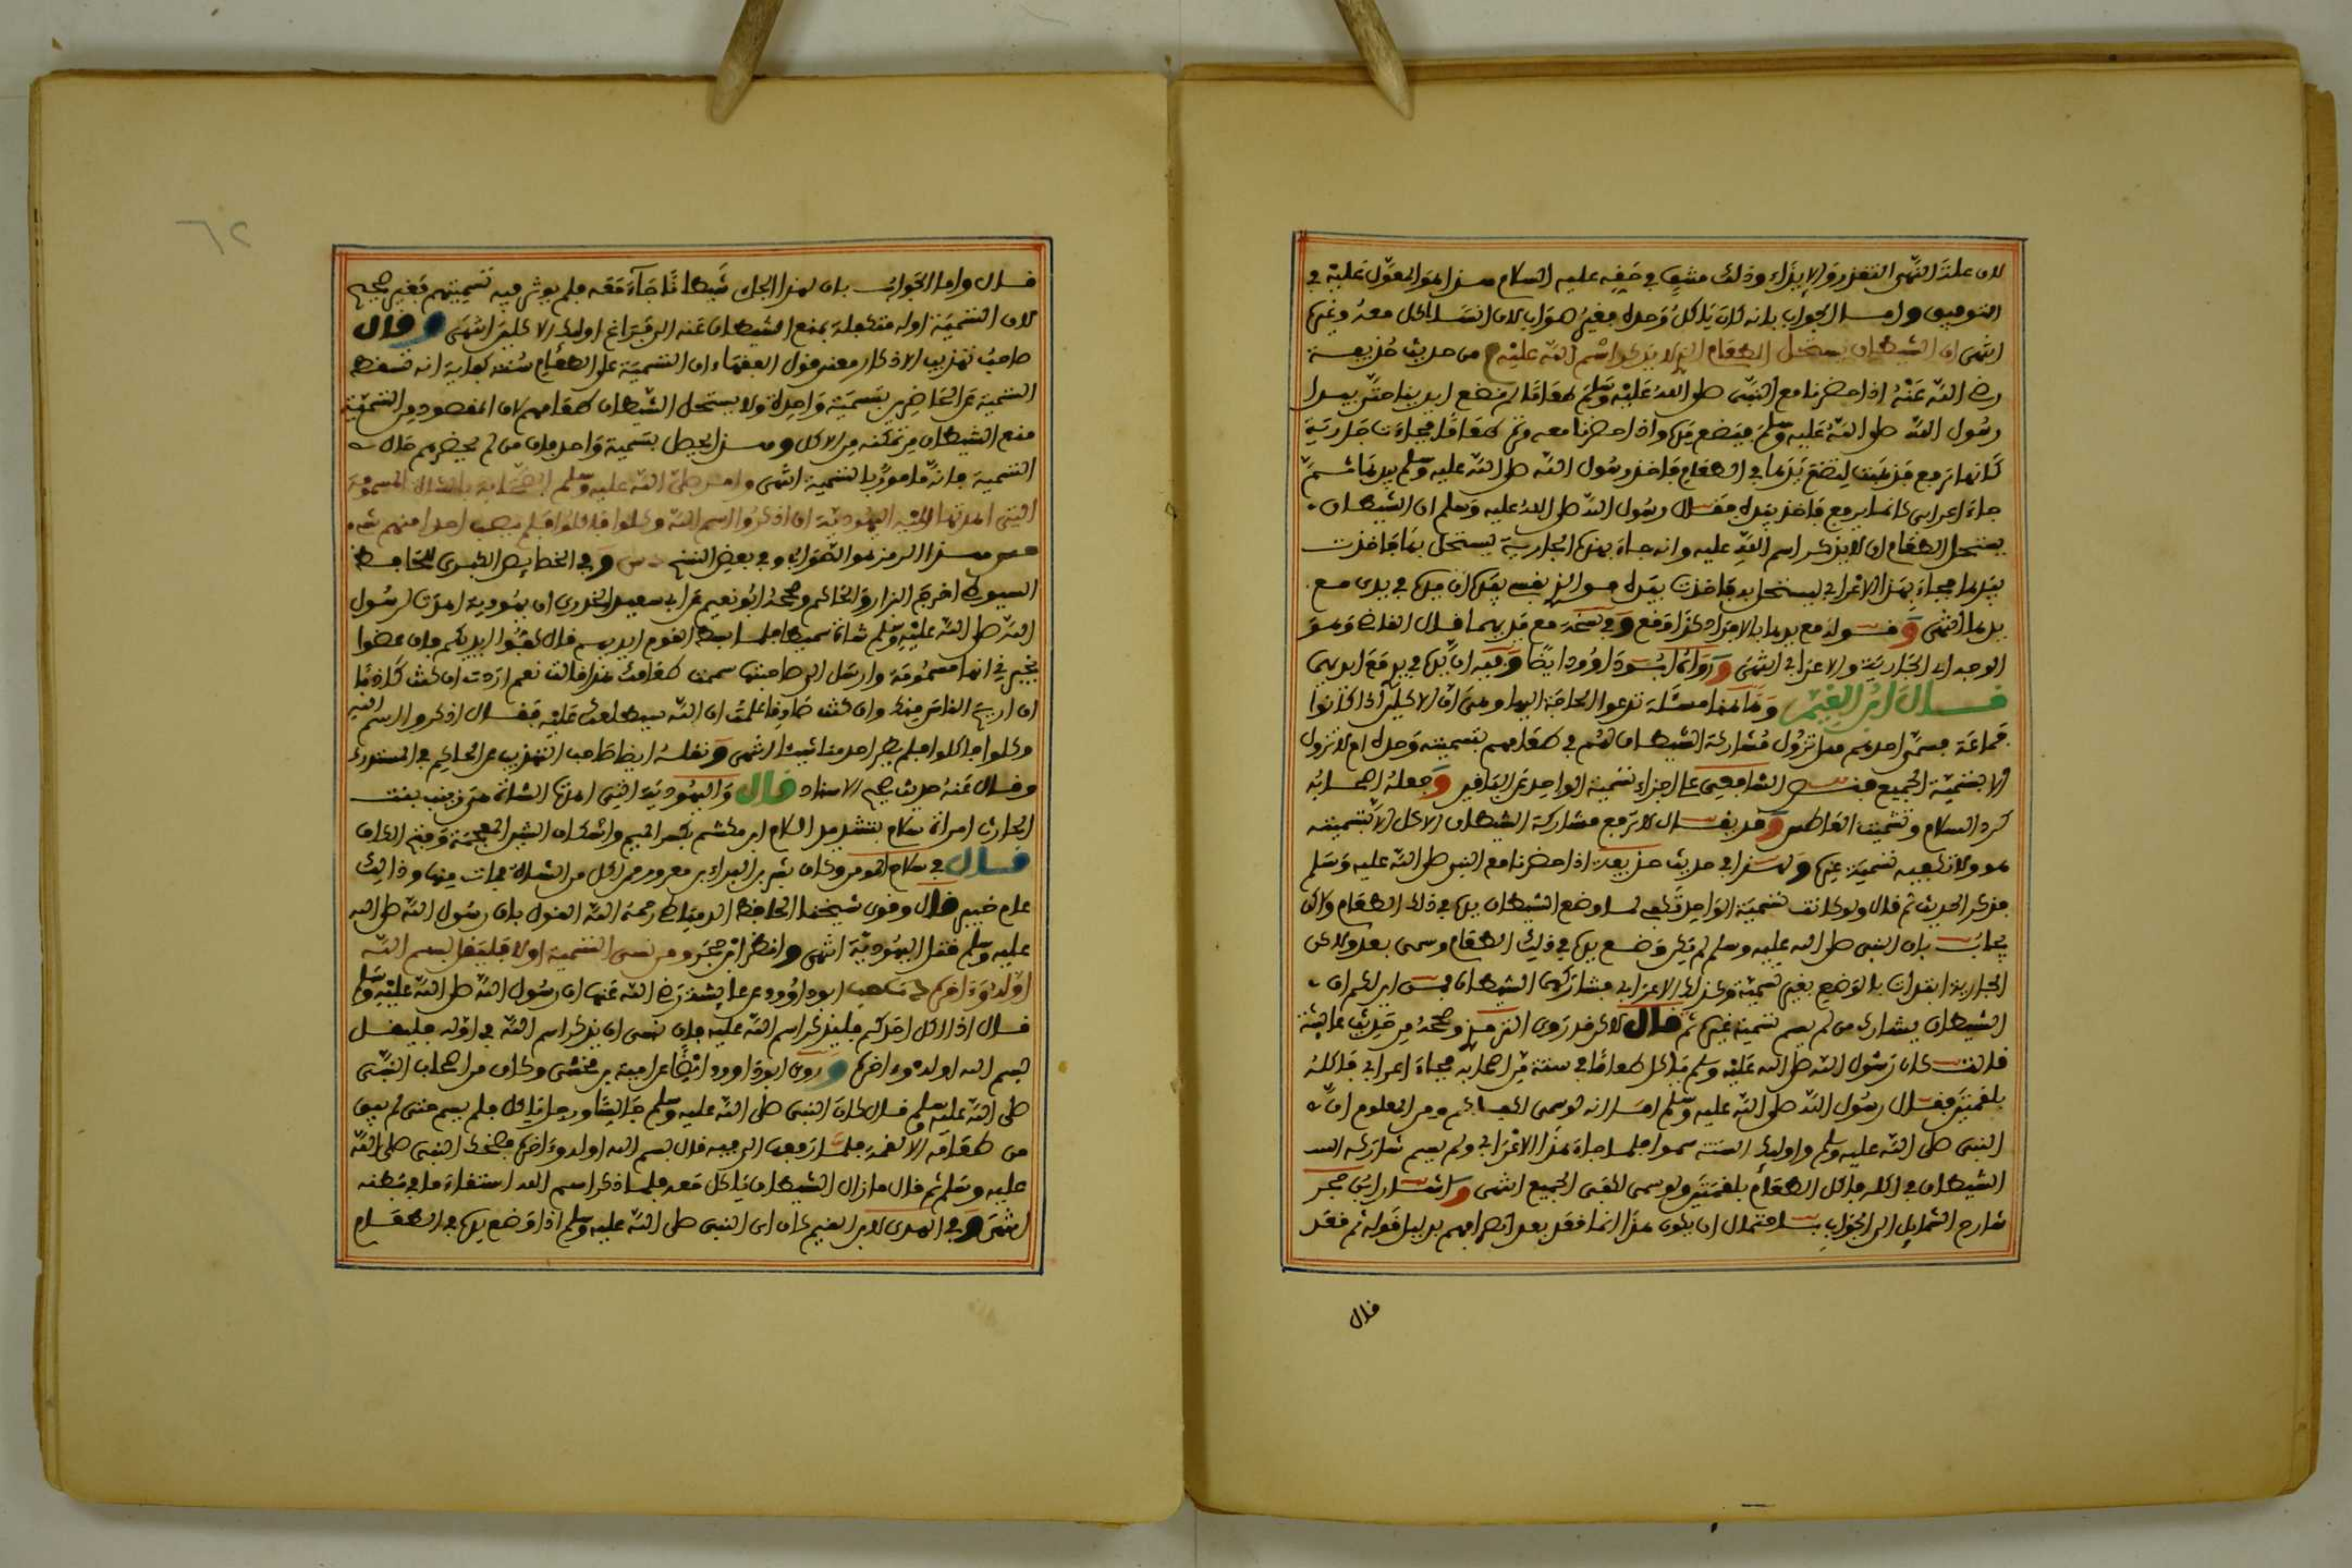 لان علة النهي التقذر والايذاء وذلك منتف في حقه عليه السلام هذا هو المعول عليه في
التوفيق واما الجواب بانه كان ياكل وحده فغير صواب لان انسا اكل معه وغيره
انتهى ان الشيطان يستحل الطعام الذي لا يذكر اسم الله عليه م من حديث حذيفة
رضي الله عنه اذا حضرنا مع النبي صلى الله عليه وسلم طعاما لم نضع ايدينا حتى يبدا
رسول الله صلى الله عليه وسلم فيضع يده وانا حضرنا معه مرة طعاما فجاءت جارية
كانها تدفع فذهبت لتضع يدها في الطعام فاخذ رسول الله صلى الله عليه وسلم بيدها ثم
جاء اعرابي كانما يدفع فاخذ بيده فقال رسول الله صلى الله عليه وسلم ان الشيطان
يستحل الطعام ان لا يذكر اسم الله عليه وانه جاء بهذه الجارية ليستحل بها فاخذت
بيدها فجاء بهذا الاعرابي ليستحل به فاخذت بيده فو الذي نفسي بيده ان يده في يدي مع
يدها انتهى وقوله مع يدها بالافراد كذا وقع وفي نسخة مع يديهما قال القاضي وهو
الوجه اي الجارية والاعرابي انتهى ورواه ابو داوود ايضا وفيه ان يده في يدي مع ايديهما
قال ابن القيم وها هنا مسئلة تدعو الحاجة اليها وهي ان الاكلين اذا كانوا
جماعة فسمى احدهم هل تزول مشاركة الشيطان لهم في طعامهم بتسميته وحده ام لا تزول
الا بتسمية الجميع فنص الشافعي على اجزاء تسمية الواحد عن الباقين وجعله اصحابه
كرد السلام وتشميت العاطس وقد يقال لا ترفع مشاركة الشيطان الاكل الا بتسميته
هو ولا تكفيه تسمية غيره ولهذا في حديث حذيفة اذا حضرنا مع النبي صلى الله عليه وسلم
فذكر الحديث ثم قال ولو كانت تسمية الواحد تكفي لما وضع الشيطان يده في ذلك الطعام ولاكن
يجاب بان النبي صلى الله عليه وسلم لم يكن وضع يده في ذلك الطعام وسمى بعد ولاكن
الجارية ابتدات بالوضع بغير تسمية وكذلك الاعرابي فشاركهما الشيطان فمن اين لكم ان
الشيطان يشارك من لم يسم بتسمية غيره ثم قال لاكن قد روى الترمذي وصححه من حديث عائشة
قالت كان رسول الله صلى الله عليه وسلم ياكل طعاما في ستة من اصحابه فجاء اعرابي فاكله
بلقمتين فقال رسول الله صلى الله عليه وسلم اما انه لو سمى لكفاكم ومن المعلوم ان
النبي صلى الله عليه وسلم واوليك الستة سموا فلما جاء هذا الاعرابي ولم يسم شاركه
الشيطان في اكله فاكل الطعام بلقمتين ولو سمى لكفى الجميع انتهى واشار ابن حجر
شارح الشمايل الى الجواب باحتمال ان يكون هذا انما قعد بعد فراغهم بدليل قوله ثم قعد
قال
قال واما الجواب بان لهذا الجاى شيطانا جاء معه فلم يوثر فيه تسميتهم فغير صحيح
لان التسمية اوله متكفلة بمنع الشيطان عنه الى فراغ اوليك الاكلين انتهى وقال
صاحب تهذيب الاذكار معنى قول الفقهاء ان التسمية على الطعام سنة كفاية انه تسقط
التسمية عن الحاضرين بتسمية واحدة ولا يستحل الشيطان طعامهم لان المقصود من التسمية
منع الشيطان من تمكنه من الاكل وهذا يحصل بتسمية واحد فان من لم يحضرهم حالة
التسمية فانه مامور بالتسمية انتهى وامر صلى الله عليه وسلم الصحابة بالشاة المسمومة
التي اهدتها اليه اليهودية ان اذكروا اسم الله وكلوا فاكلوا فلم يصب احدا منهم شيء
هذا الرمز هو الصواب وفي بعض النسخ وفي الخصايص الكبرى للحافظ
السيوطي اخرج البزار والحاكم وصححه ابو نعيم عن ابي سعيد الخدري ان يهودية اهدت لرسول
الله صلى الله عليه وسلم شاة سميطا فلما بسط القوم ايديهم قال كفوا ايديكم فان عضوا
يخبرني انها مسمومة وارسل الى صاحبتها سممت طعامك هذا قالت نعم اردت ان كنت كاذبا
ان اريح الناس منك وان كنت صادقا علمت ان الله سيطلعك عليه فقال اذكروا اسم الله
وكلوا فاكلوا فلم يضر احد منا شيئا انتهى ونقله ايضا صاحب التهذيب عن الحاكم في المستدرك
وقال عنه حديث صحيح الاسناد قال واليهودية التي اهدتها الشاة هي زينب بنت
الحارث امراة سلام بتشديد اللام ابن مشكم بكسر الميم واسكان الشين المعجمة وفتح الكاف
قال في سلاح المومن وكان بشر بن البراء بن معرور ممن اكل من الشاة فمات منها وذالك
عام خيبر قال وقوى شيخنا الحافظ الدمياطي رحمه الله القول بان رسول الله صلى الله
عليه وسلم قتل اليهودية انتهى وانظر ابن حجر ومن نسى التسمية اولا فليقل بسم الله
اوله وءاخره ابو داوود عن عايشة رضي الله عنها ان رسول الله صلى الله عليه وسلم
قال اذا اكل احدكم فليذكر اسم الله عليه فان نسى ان يذكر اسم الله في اوله فليقل
بسم الله اوله وءاخره وروى ابو داوود ايضا عن امية بن مخشي وكان من اصحاب النبي
صلى الله عليه وسلم قال كان النبي صلى الله عليه وسلم جالسا ورجل ياكل فلم يسم حتى لم يبق
من طعامه الا لقمة فلما رفعها الى فيه قال بسم الله اوله وءاخره فضحك النبي صلى الله
عليه وسلم ثم قال ما زال الشيطان ياكل معه فلما ذكر اسم الله استقاء ما في بطنه
انتهى وفي الهدى لابن القيم كان اى النبي صلى الله عليه وسلم اذا وضع يده في الطعام